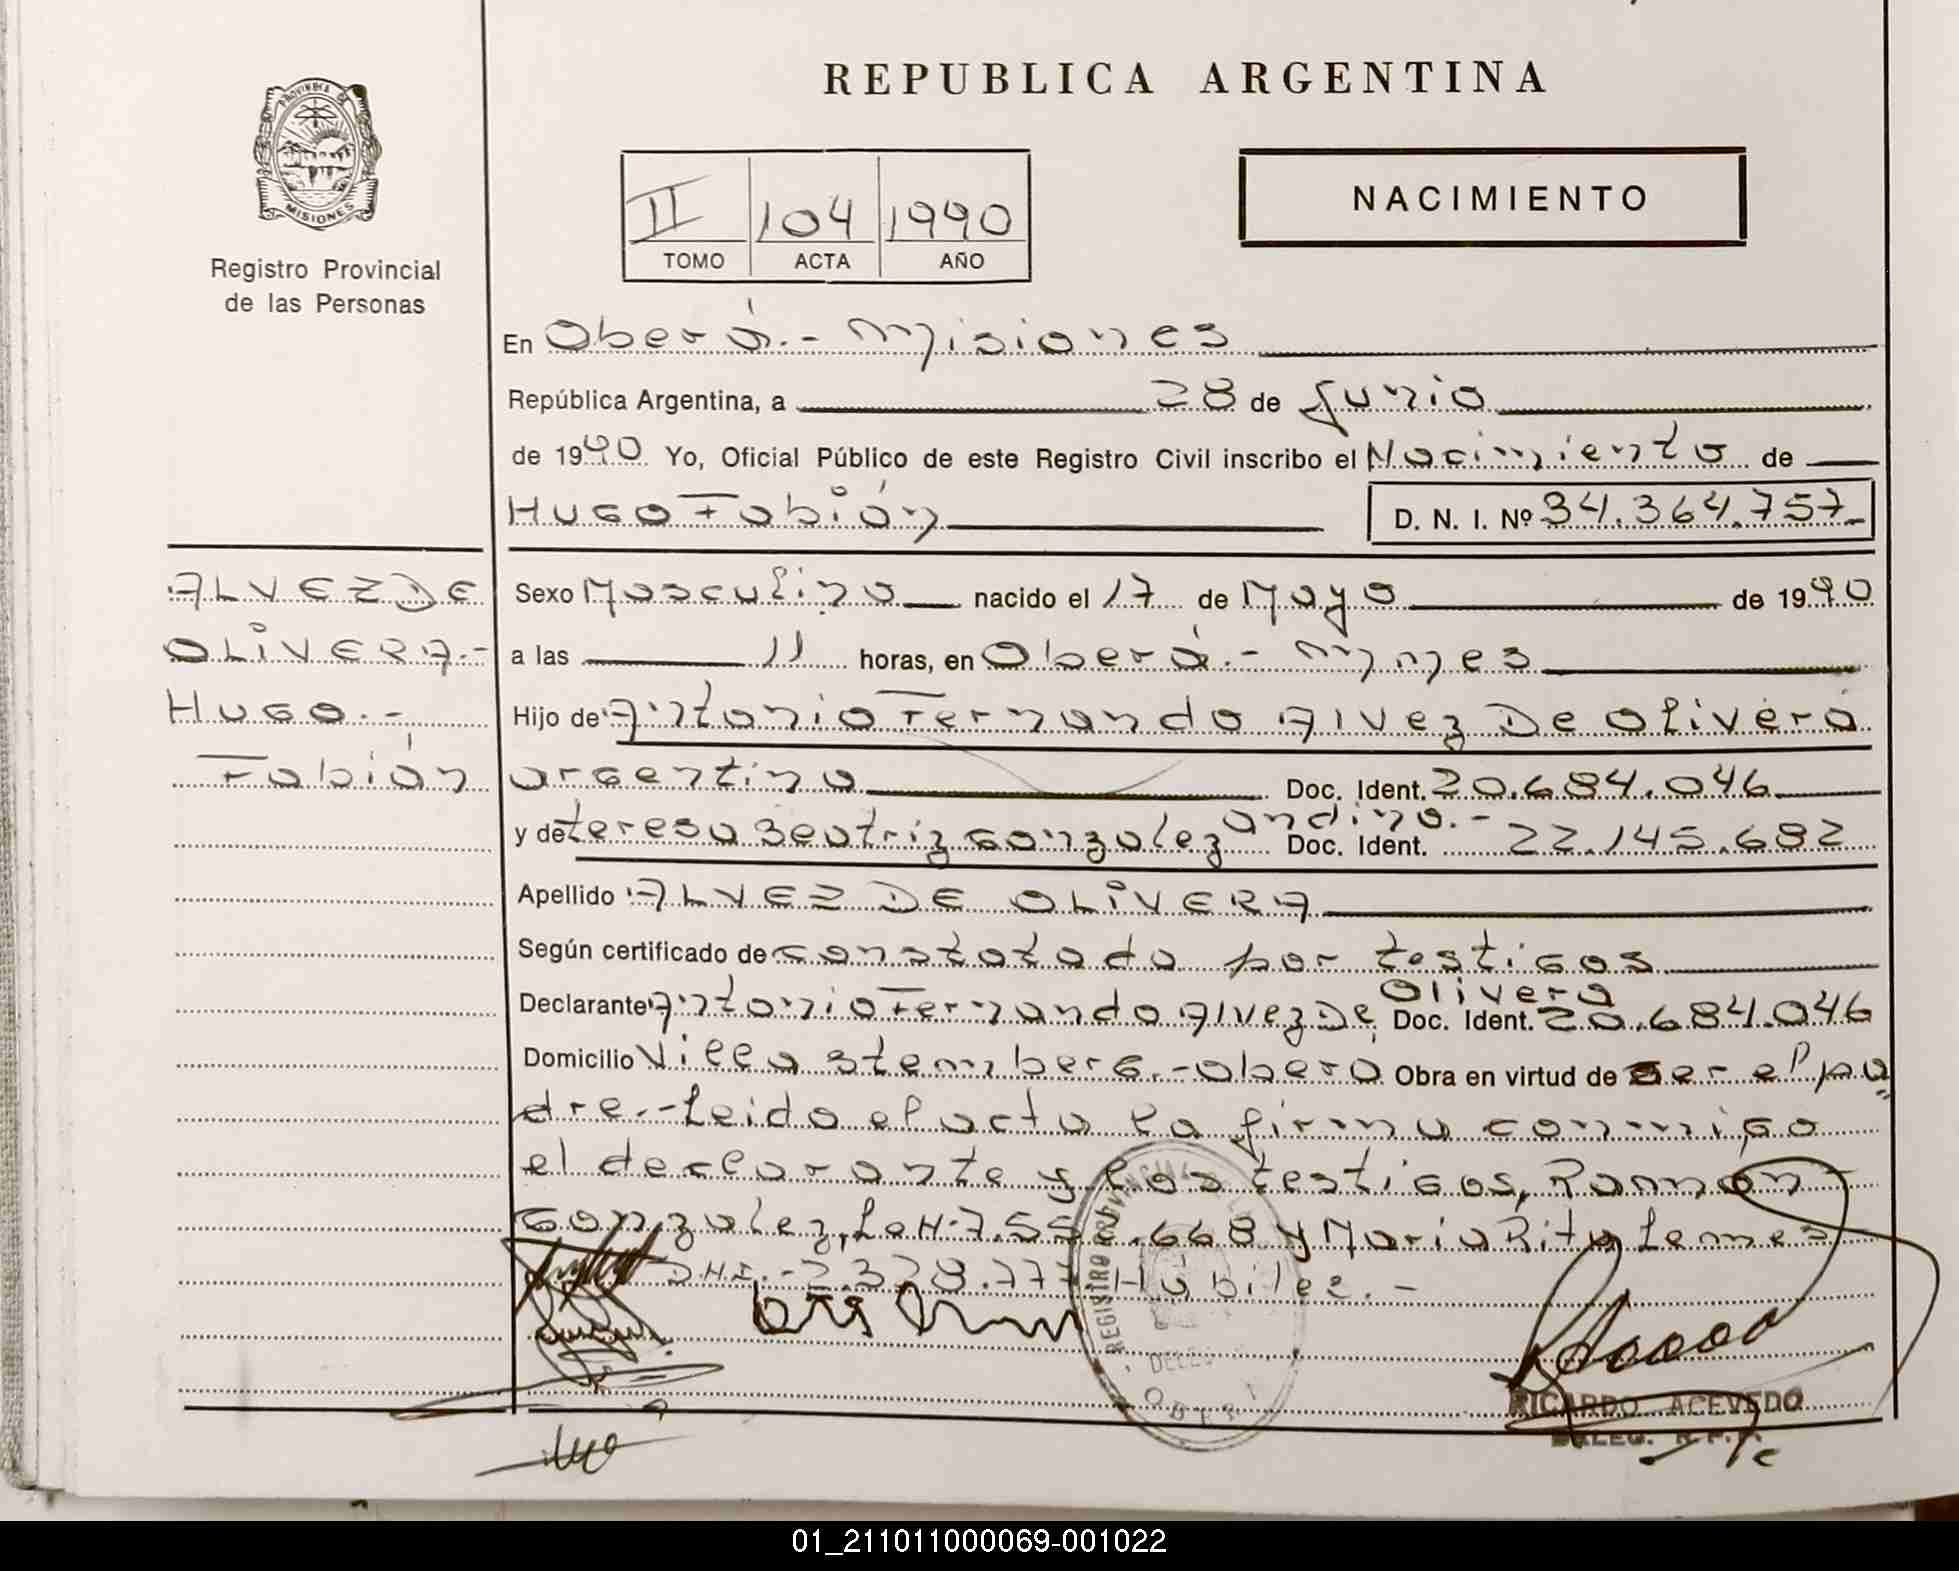 REPUBLICA ARGENTINA
PROVINCIA DE
MISIONES
Registro Provincial
de las Personas
II 104 1990
TOMO ACTA AÑO
NACIMIENTO
En Oberá.- Misiones
República Argentina, a 28 de Junio
de 1990 Yo, Oficial Público de este Registro Civil inscribo el Nacimiento de
Hugo Fabián
D. N. I. Nº 34.364.757_
ALVEZ DE
OLIVERA.-
Hugo.-
Fabián
Sexo Masculino nacido el 17 de Mayo de 1990
a las 11 horas, en Oberá.- Mnnes
Hijo de Antonio Fernando Alvez De Olivera
argentino Doc. Ident. 20.684.046
y de teresa Beatriz Gonzalez andina.- Doc. Ident. 22.145.682
Apellido ALVEZ DE OLIVERA
Según certificado de constatado por testigos
Declarante Antonio Fernando Alvez De Olivera Doc. Ident. 20.684.046
Domicilio Villa Stemberg.-Oberá Obra en virtud de ser el pa
dre.-Leido el acta la firma conmigo
el declarante y los testigos, Ramón
Gonzalez, LeN-7.552.668 y Maria Rita Lemes
DNI.-2.328.777 Hábiles.-
REGISTRO PROVINCIAL
DELEG
OBERA
RICARDO ACEVEDO
DELEG. R.P.P.
01_211011000069-001022